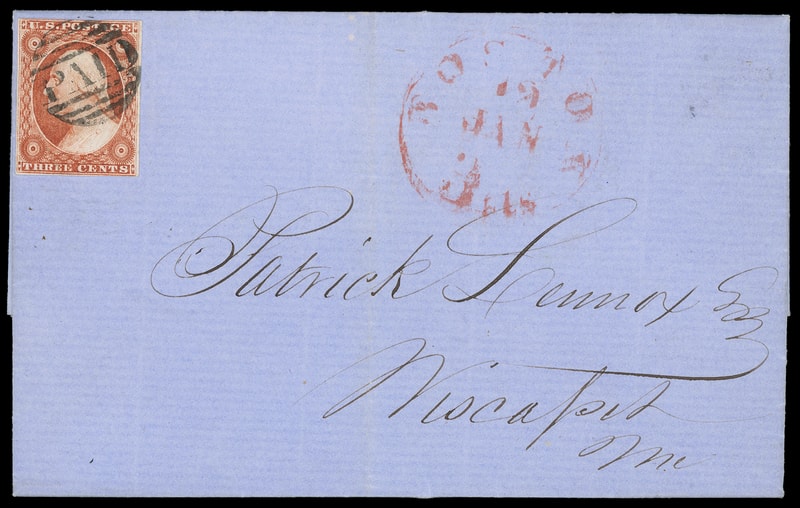 U.S. POSTAGE
PAID
THREE CENTS
BOSTON
19
JAN
Patrick Lennox Esq
Wiscasset
Me